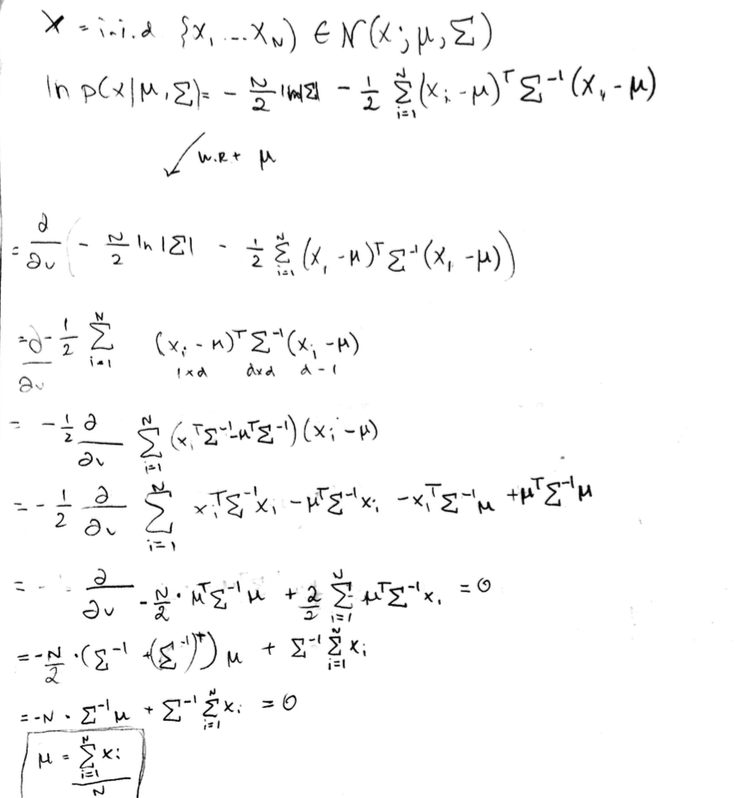 X = i.i.d {x₁ ... X_N) ∈ N(x; μ, Σ)
ln p(x|μ, Σ) = - N/2 ln|Σ| - 1/2 Σ_{i=1}^{N} (x_i - μ)ᵀ Σ⁻¹ (x_i - μ)
w.r.t μ
= ∂/∂υ ( - N/2 ln |Σ| - 1/2 Σ_{i=1}^{N} (x_i - μ)ᵀ Σ⁻¹ (x_i - μ) )
= ∂/∂υ - 1/2 Σ_{i=1}^{N} (x_i - μ)ᵀ Σ⁻¹ (x_i - μ)
1xd dxd d-1
= - 1/2 ∂/∂υ Σ_{i=1}^{N} (x_iᵀ Σ⁻¹ - μᵀ Σ⁻¹) (x_i - μ)
= - 1/2 ∂/∂υ Σ_{i=1}^{N} x_iᵀ Σ⁻¹ x_i - μᵀ Σ⁻¹ x_i - x_iᵀ Σ⁻¹ μ + μᵀ Σ⁻¹ μ
= ∂/∂υ - N/2 · μᵀ Σ⁻¹ μ + 2/2 Σ_{i=1}^{N} μᵀ Σ⁻¹ x_i = 0
= - N/2 · (Σ⁻¹ + (Σ⁻¹)ᵀ) μ + Σ⁻¹ Σ_{i=1}^{N} x_i
= - N · Σ⁻¹ μ + Σ⁻¹ Σ_{i=1}^{N} x_i = 0
μ = Σ_{i=1}^{N} x_i / N